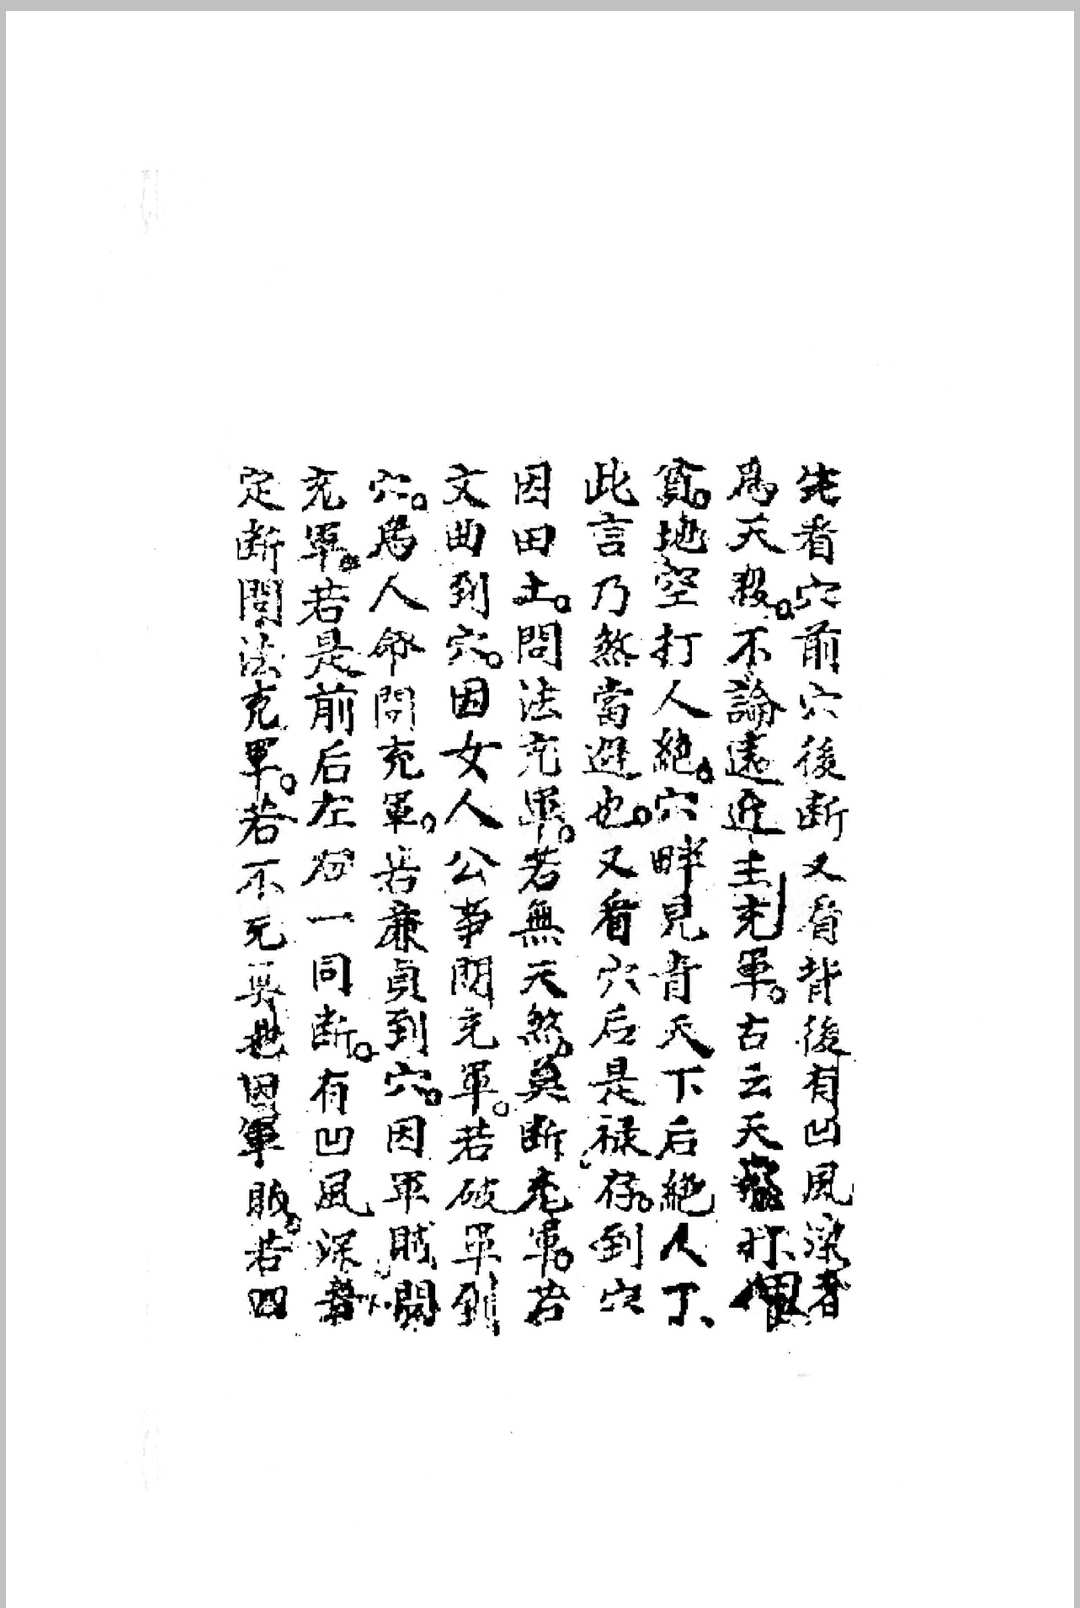 先看穴前穴後断又看背後有凹風深者
為天殺。不論遠近主充軍。古云天打
貧。地空打人絶。穴畔見青天下后絶人丁
此言乃煞當避也。又看穴后是禄存。到穴
因田土。問法充軍。若無天煞。莫断充軍。若
文曲到穴。因女人公事問充軍。若破軍到
穴。為人命問充軍。若廉貞到穴。因軍賊問
充軍。若是前后左右一同断。有凹風深者
定断問法充軍。若不死其也因軍賊。若四